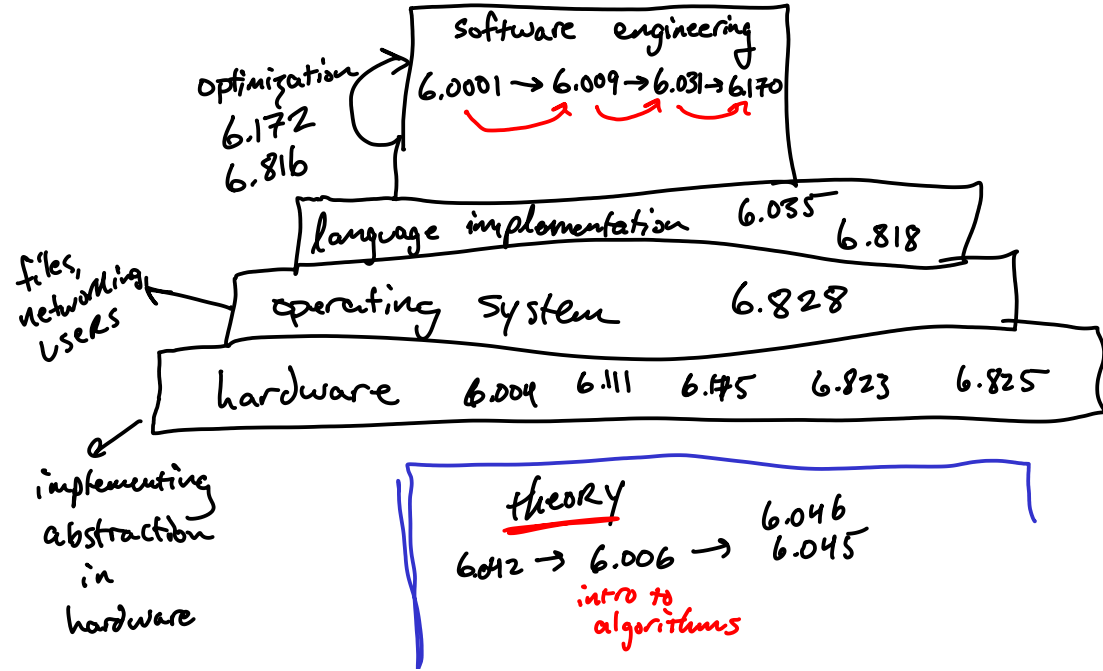 software engineering
6.0001 → 6.009 → 6.031 → 6.170
optimization
6.172
6.816
language implementation 6.035
6.818
files,
networking,
users
operating system 6.828
hardware 6.004 6.111 6.175 6.823 6.825
implementing
abstraction
in
hardware
theory
6.042 → 6.006 → 6.046
6.045
intro to
algorithms